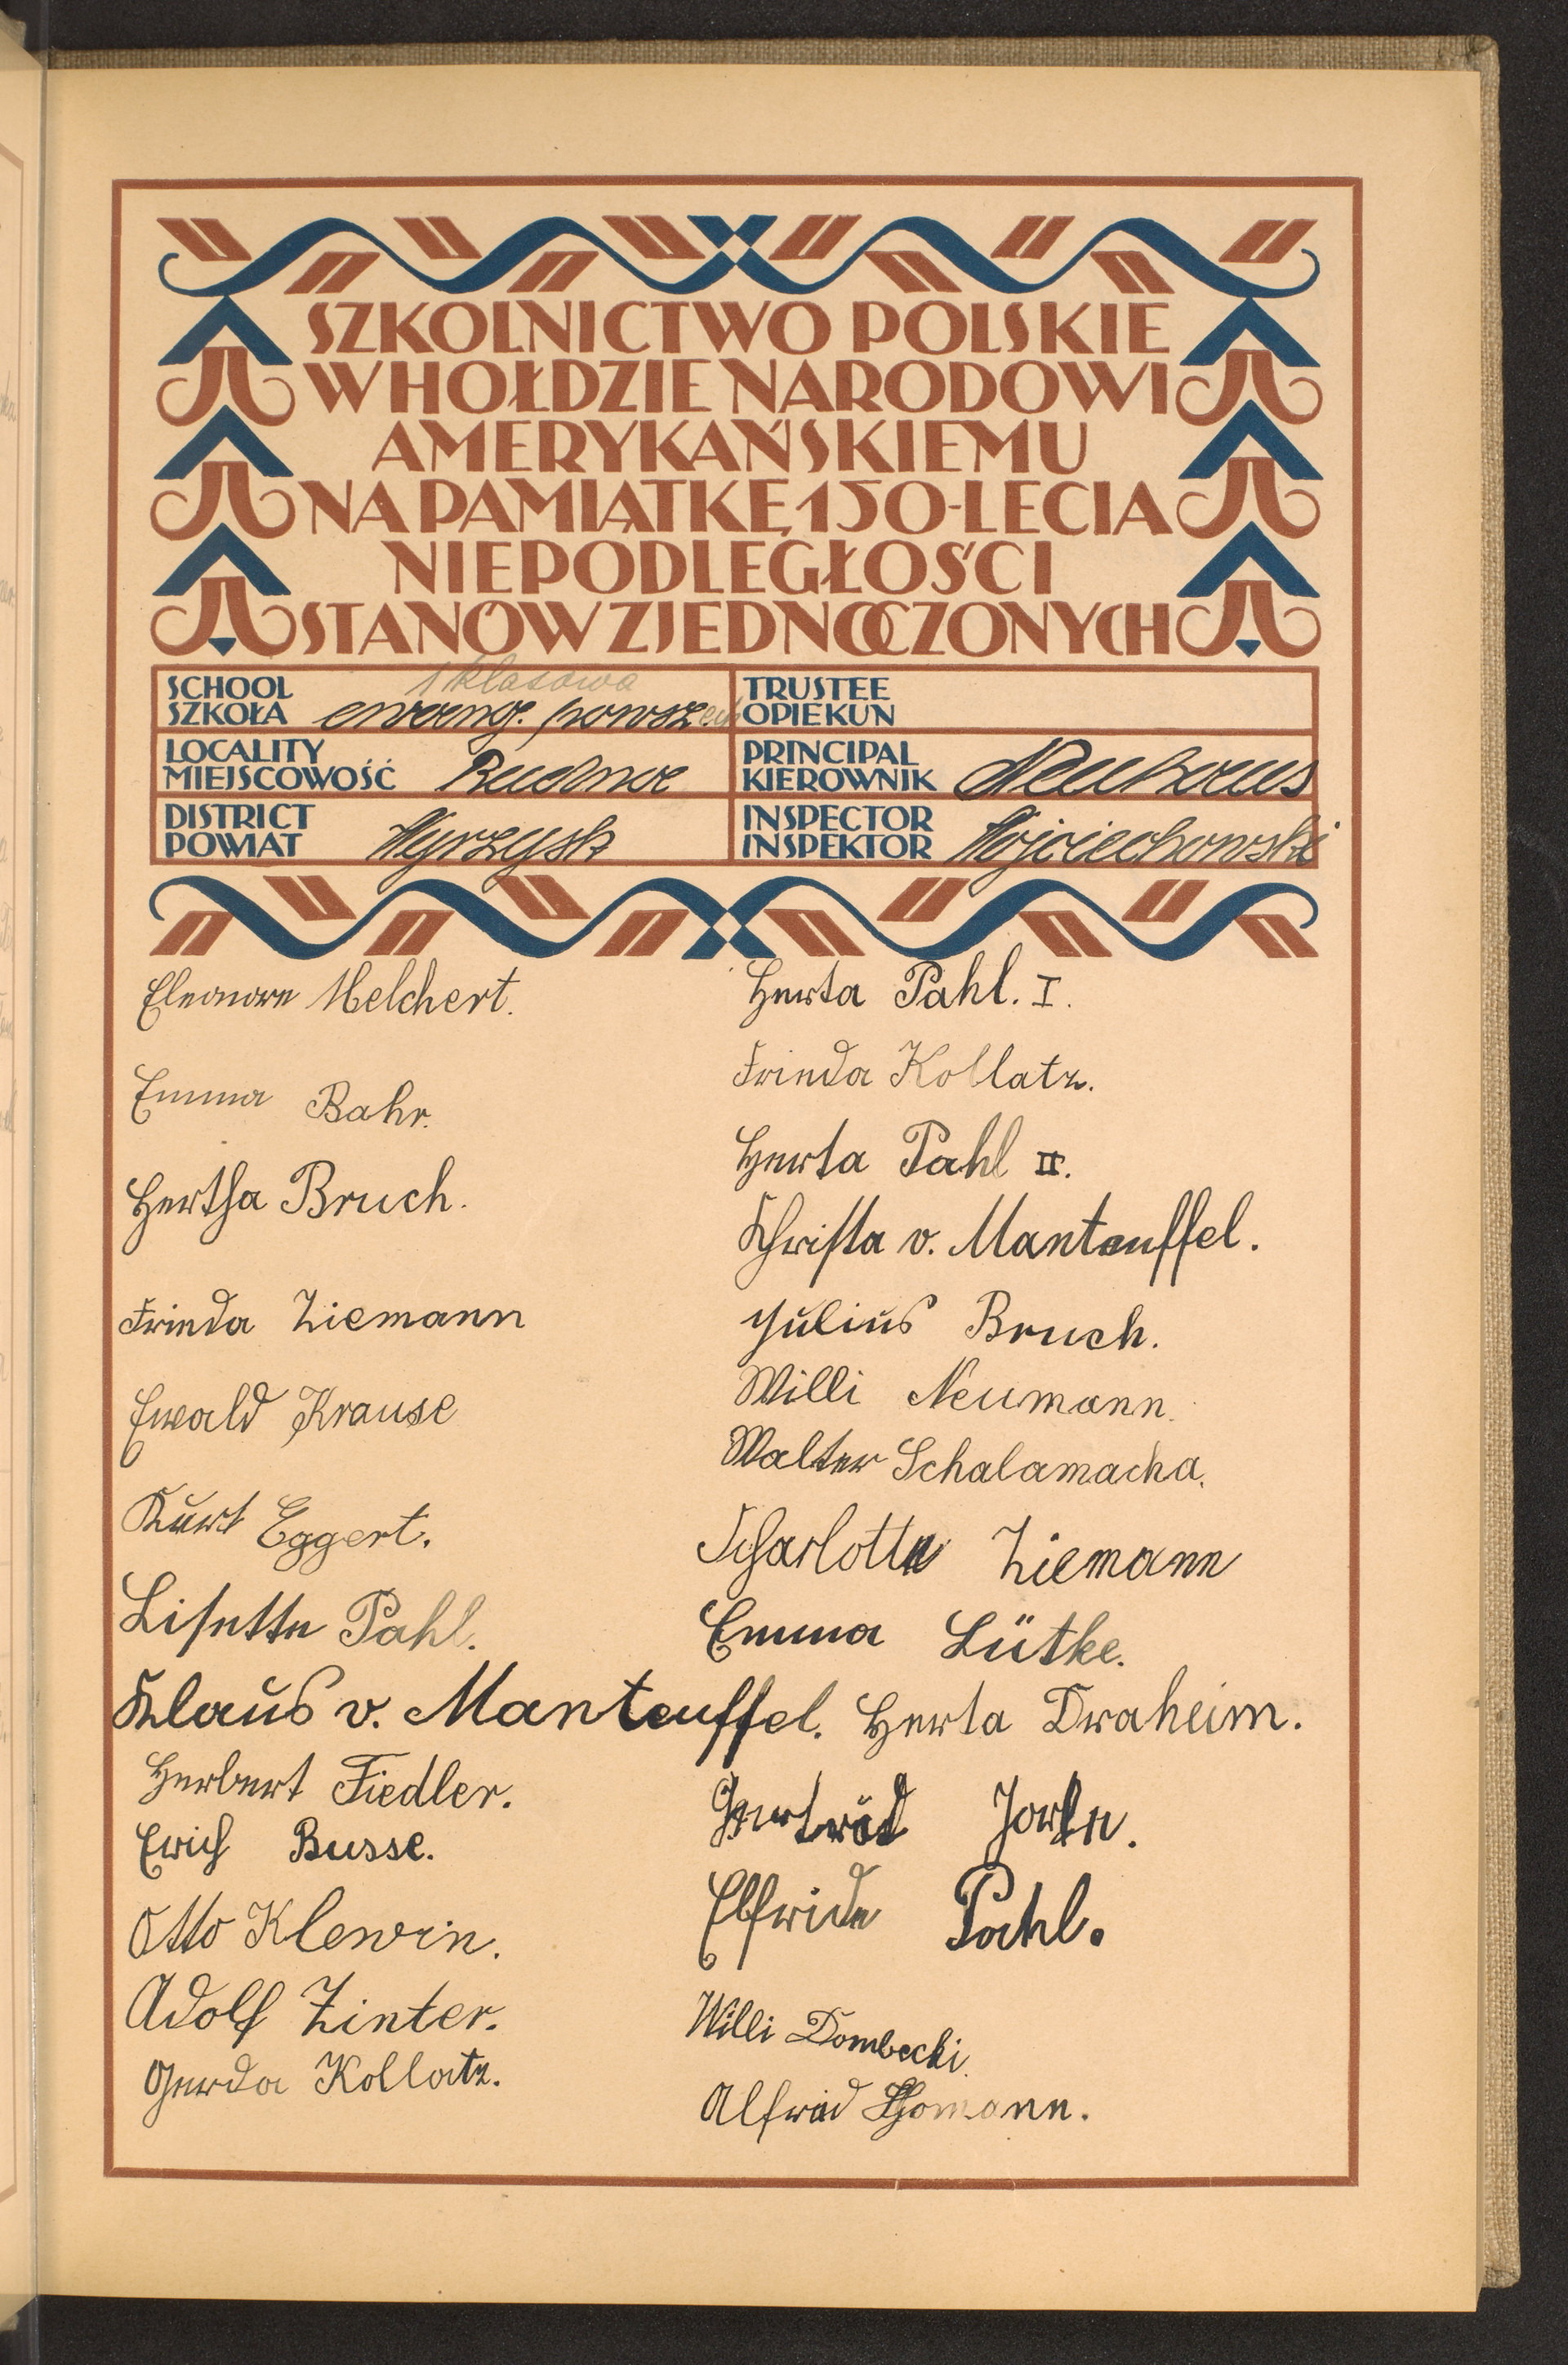 SZKOLNICTWO POLSKIE
W HOŁDZIE NARODOWI
AMERYKAŃSKIEMU
NA PAMIĄTKĘ 150-LECIA
NIEPODLEGŁOŚCI
STANÓW ZJEDNOCZONYCH
SCHOOL
SZKOŁA
1 klasowa
ewang. powszech
TRUSTEE
OPIEKUN
LOCALITY
MIEJSCOWOŚĆ
Rudna
PRINCIPAL
KIEROWNIK
Neuhaus
DISTRICT
POWIAT
Wyrzysk
INSPECTOR
INSPEKTOR
Wojciechowski
Eleonore Melchert.
Emma Bahr.
Hertha Bruch.
Frieda Ziemann
Ewald Krause
Kurt Eggert.
Lisette Pahl.
Klaus v. Manteuffel.
Herbert Fiedler.
Erich Busse.
Otto Klewin.
Adolf Zinter.
Gerda Kollatz.
Herta Pahl. I.
Frieda Kollatz.
Herta Pahl II.
Christa v. Manteuffel.
Julius Bruch.
Willi Neumann.
Walter Schalamacha.
Charlotte Ziemann
Emma Lütke.
Herta Draheim.
Gertrud
Elfride Pahl.
Willi Dombecki.
Alfred Thomann.